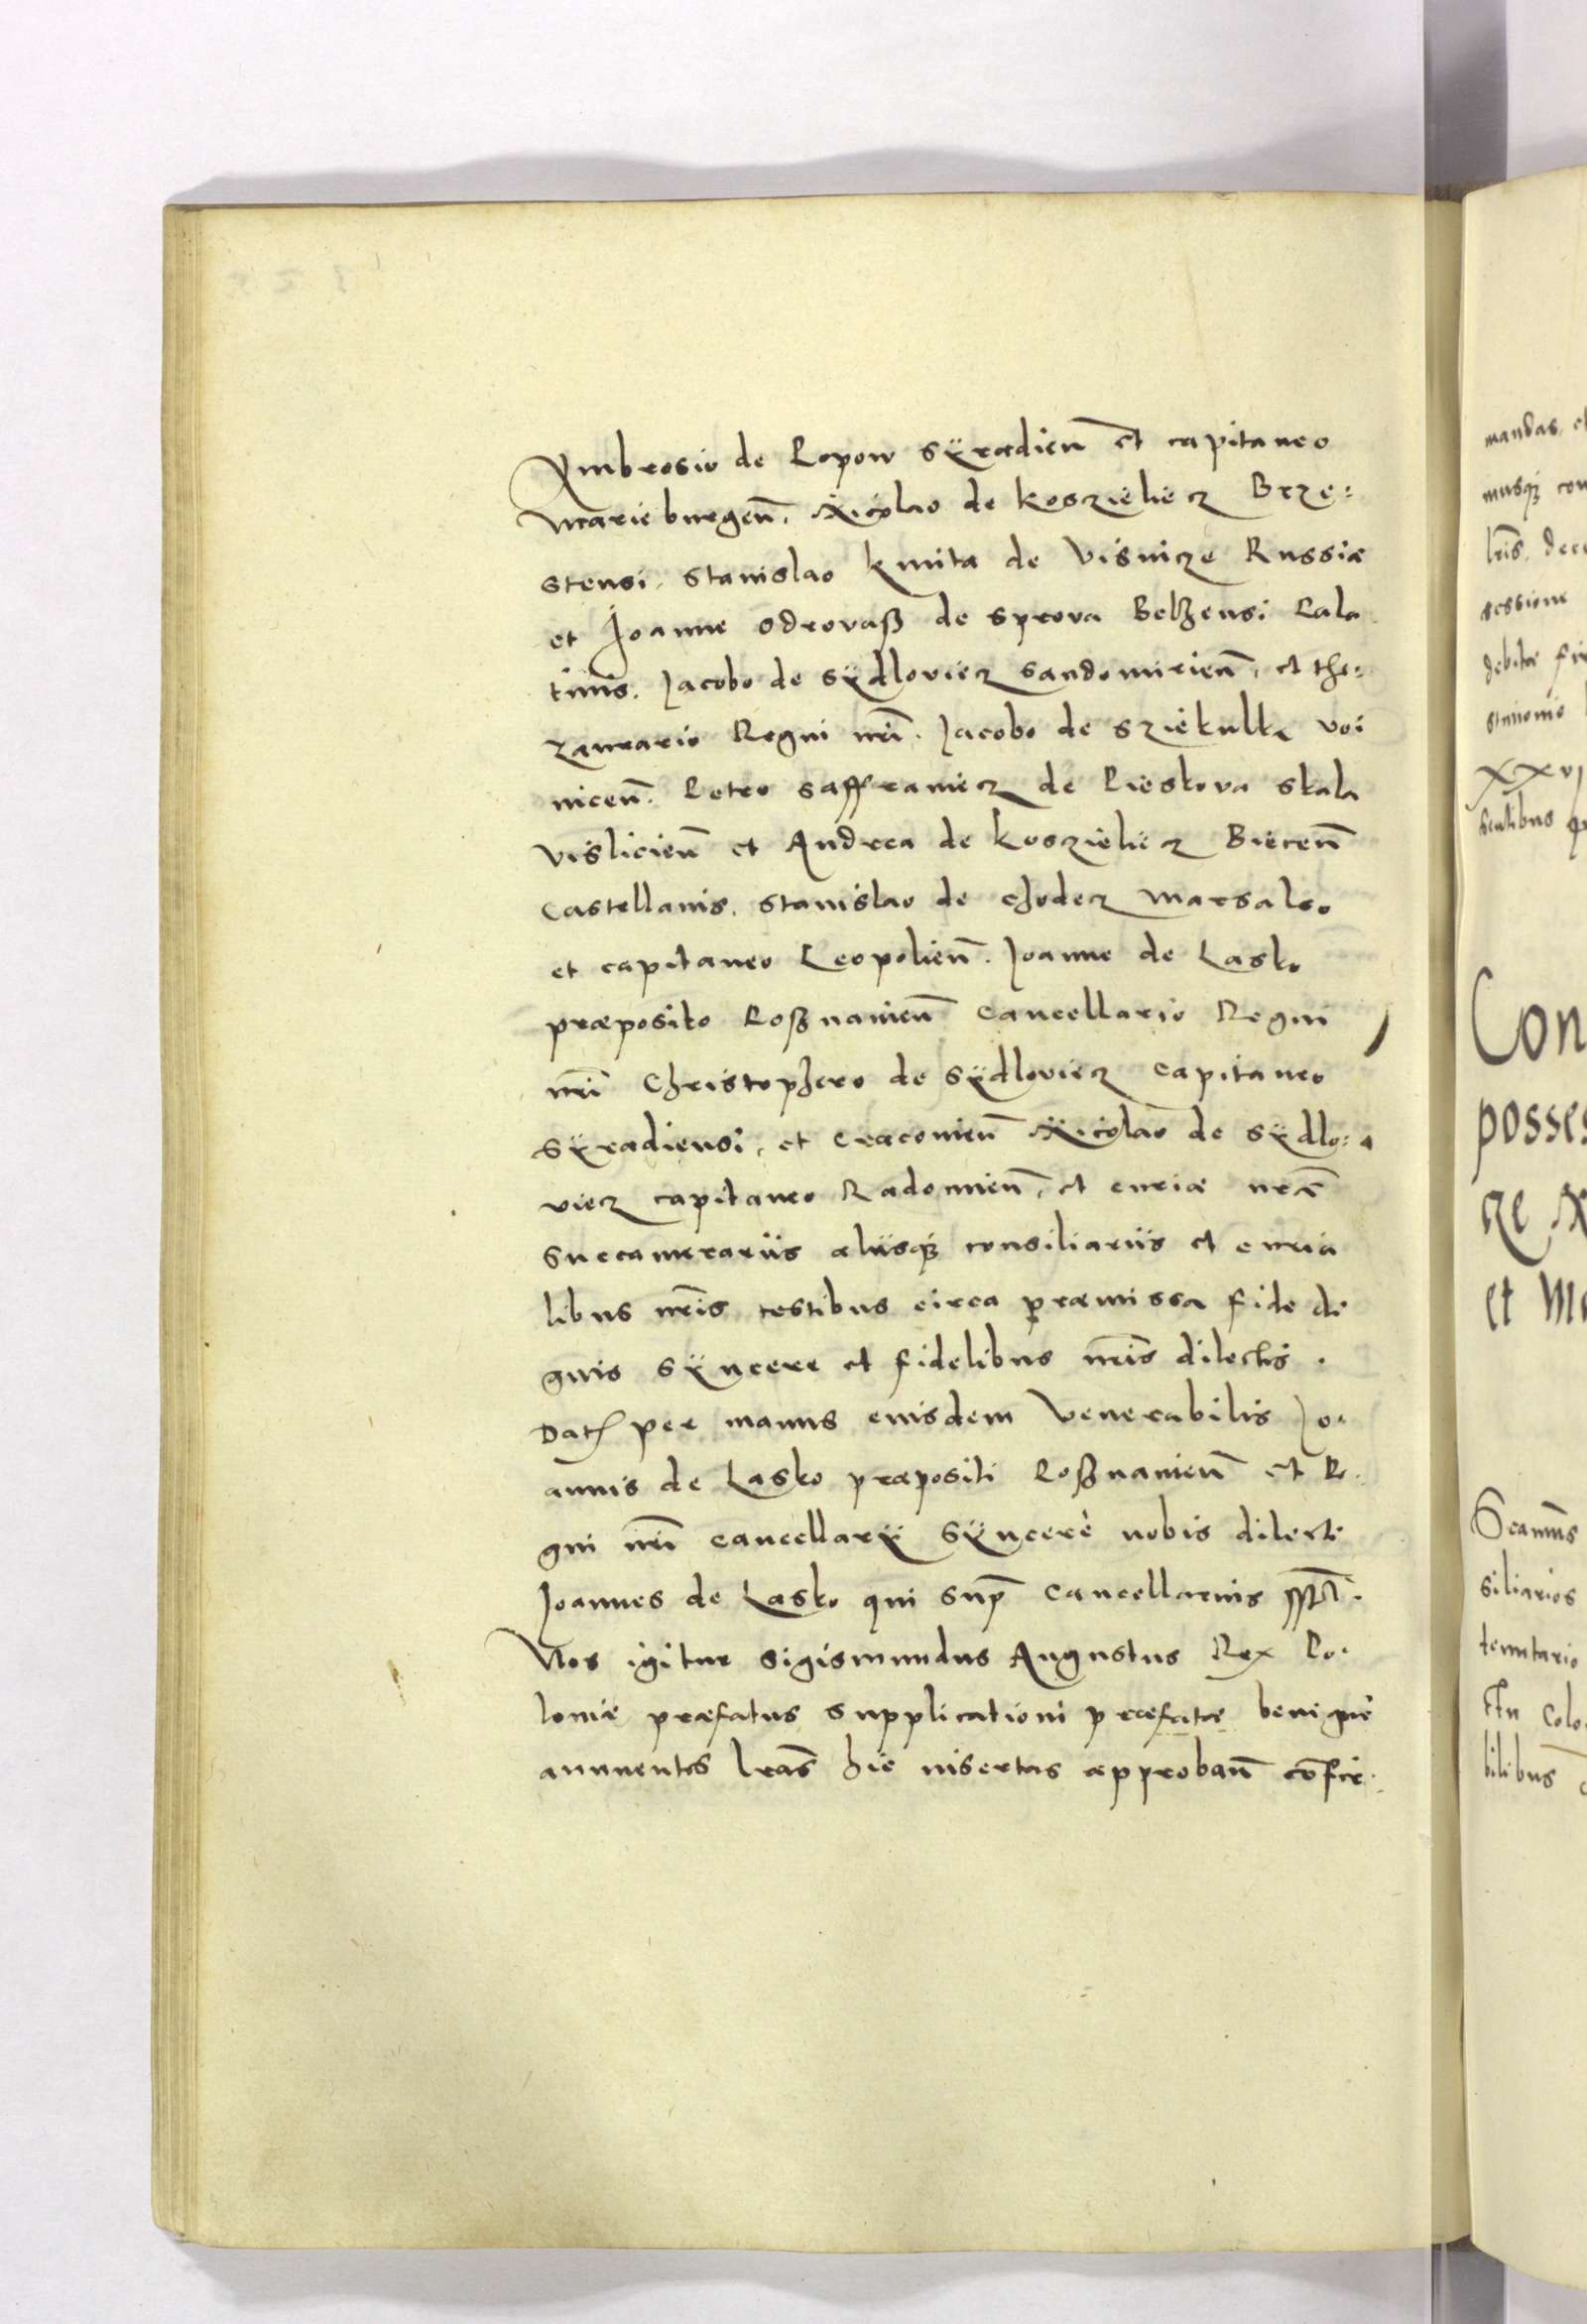 Ambrosio de Popow Syradien̄ et capitaneo
Marieburgen̄. Nicolao de Koszieliecz Brze=
stensi. Stanislao Kmita de Visnicze Russiæ
et Joanne Odrovaß de Sprova Belzensi Pala
tinis. Jacobo de Sydloviecz Sandomirien̄, et the=
zaurario Regni nr̄i. Jacobo de Sziekulka Voi
nicen̄. Petro Saffraniecz de Pieskova Skala
Vislicien̄ et Andrea de Koszieliecz Biecen̄
Castellanis. Stanislao de Chodecz Marsalco
et capitaneo Leopolien̄. Joanne de Lasko
præposito Poßnanien̄ Cancellario Regni
nr̄i Christophero de Sydloviecz Capitaneo
Syradiensi, et Cracovien̄ Nicolao de Sydlo=
viecz capitaneo Radomien̄, et curiæ nr̄æ
Succamerariis aliisq; consiliariis et curia
libus nr̄is testibus circa præmissa fide di
gnis syncere et fidelibus nr̄is dilectis.
Dat per manus eiusdem Venerabilis Jo.
annis de Lasko præpositi Poßnanien̄ et Re.
gni nr̄i cancellarÿ syncerè nobis dilecti
Joannes de Lasko qui sup̄ Cancellarius sspt̄.
Nos igitur Sigismundus Augustus Rex Po.
loniæ præfatus supplicationi præfatæ benignè
annuentes lr̄as hic insertas approban̄ confir.
mandas, et
musq; con
lr̄is. dece
sessione
debitæ fir
stimonio
XXVI
sentibus
Con
posses
cze N
et Ma
siliarios
tenutario
bilibus